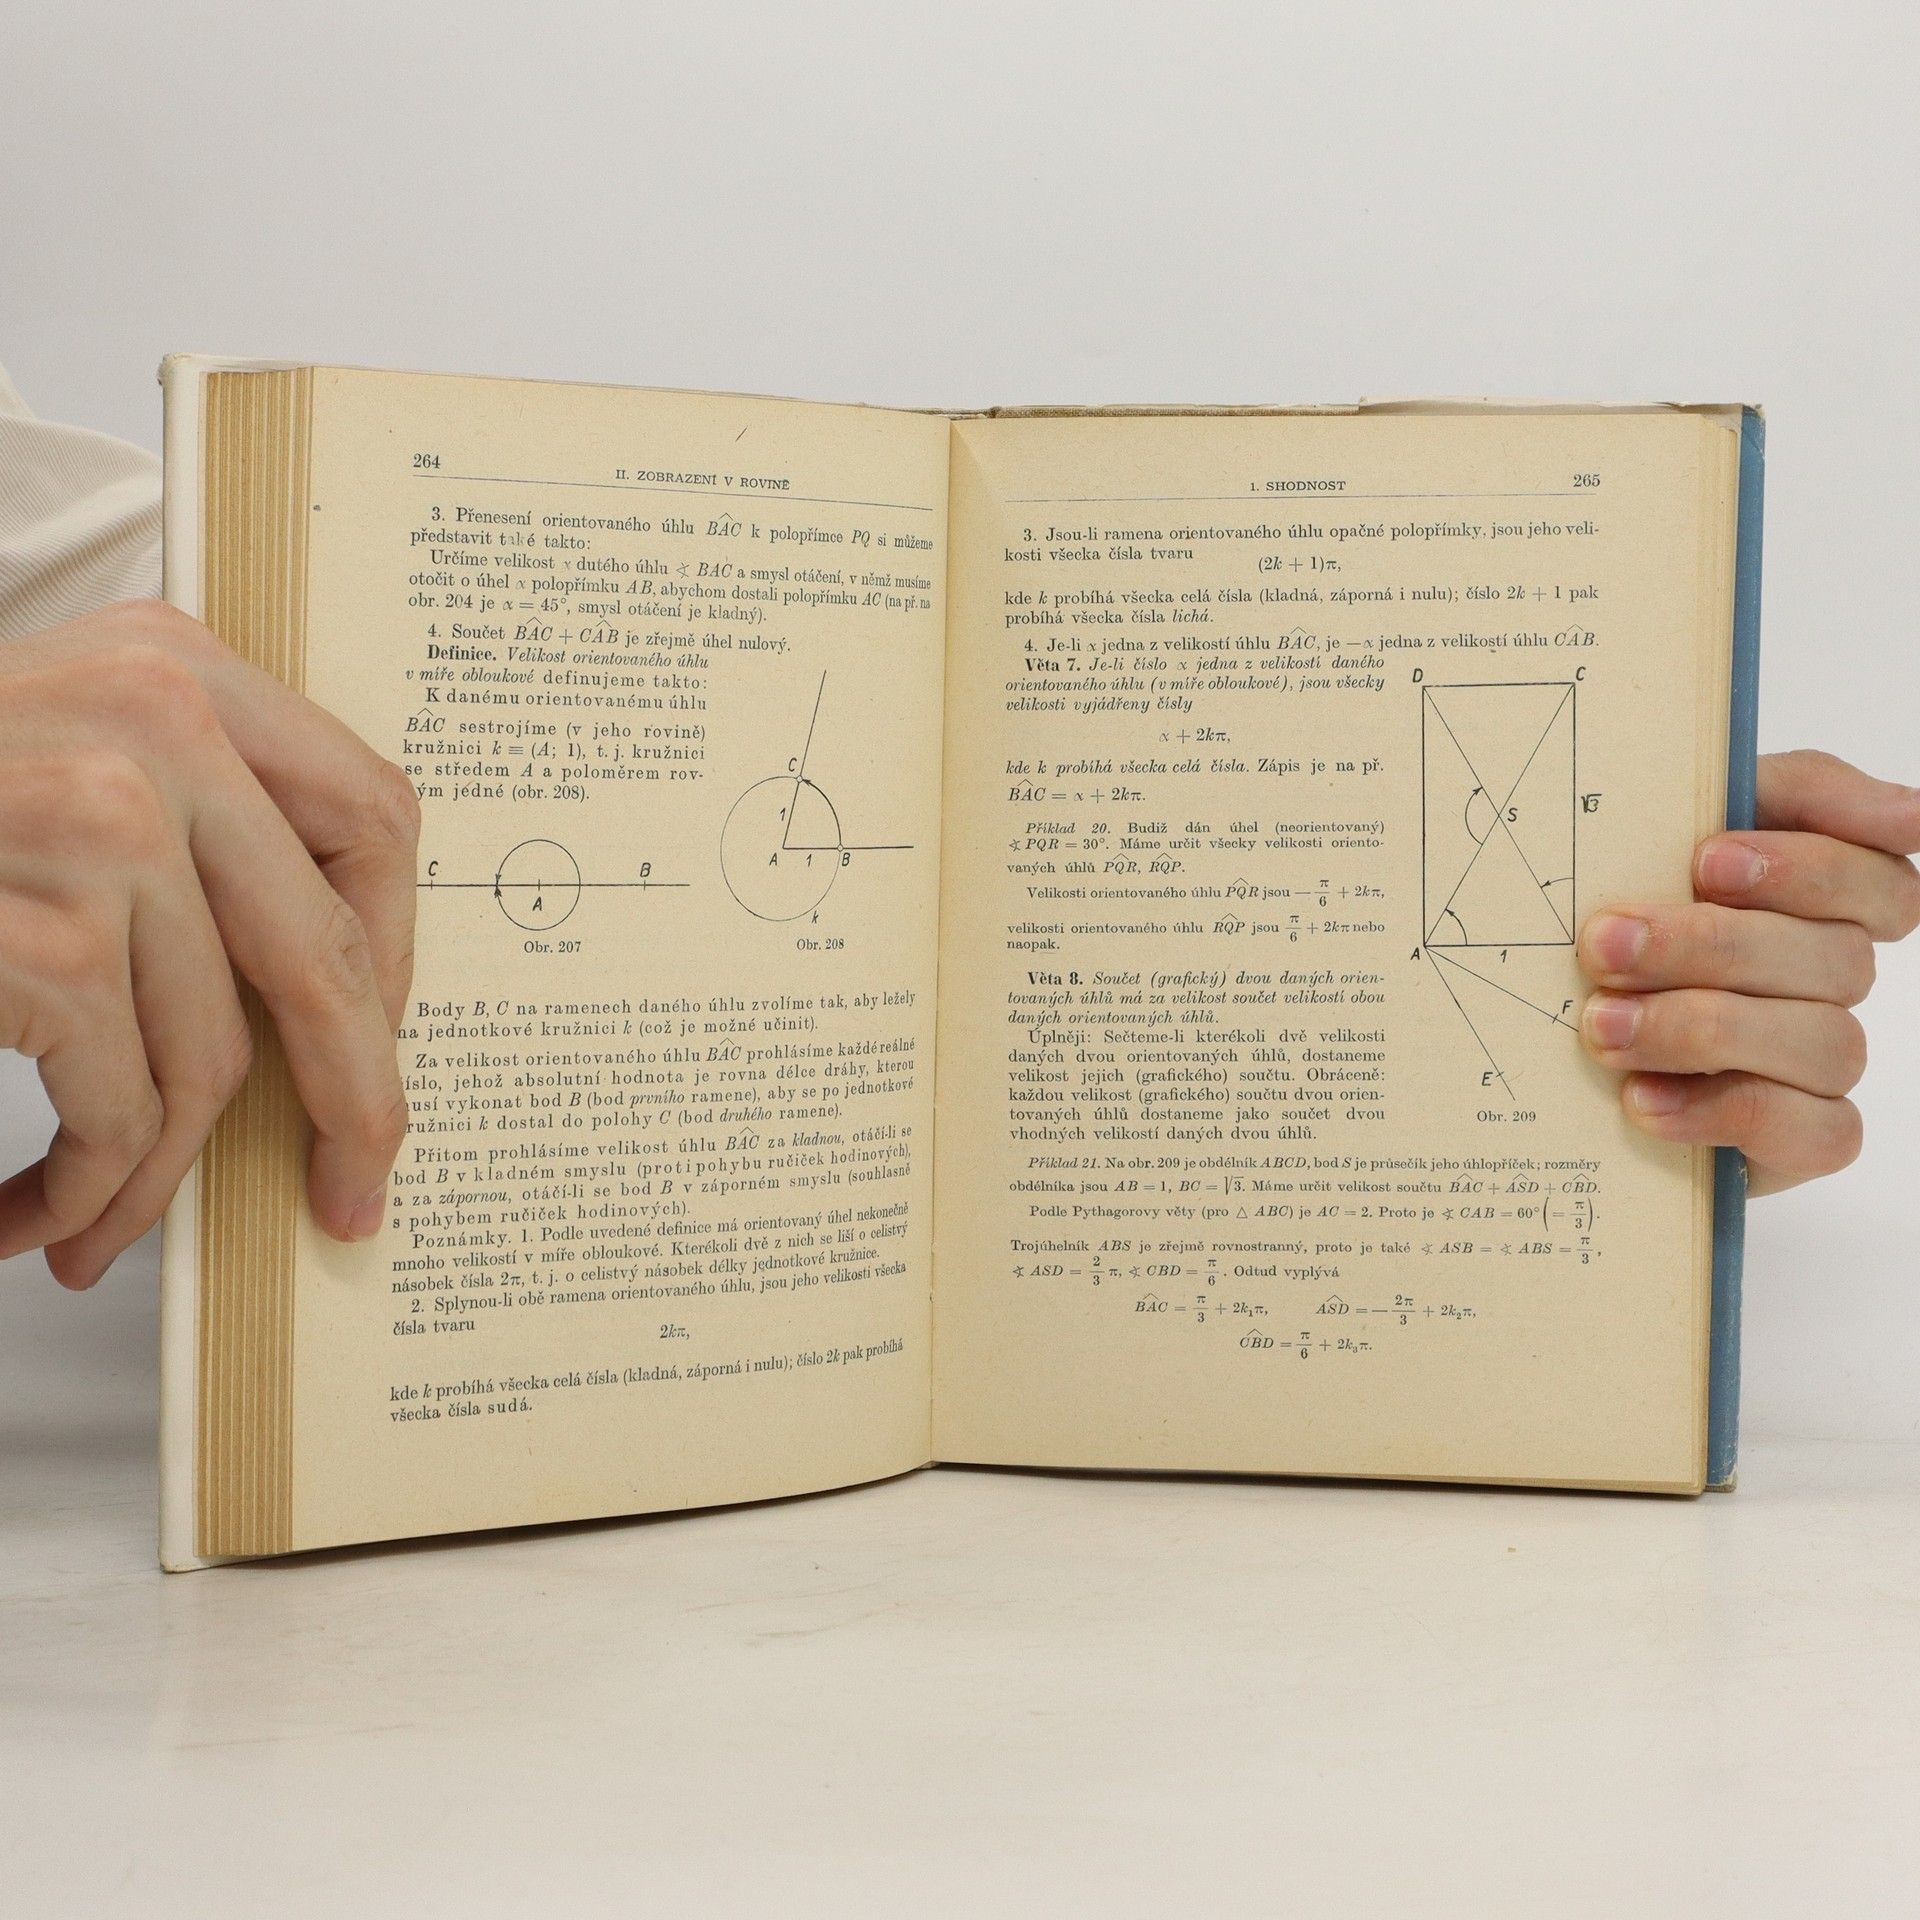 264
II. ZOBRAZENÍ V ROVINĚ
3. Přenesení orientovaného úhlu BAC k polopřímce PQ si můžeme
představit také takto:
Určíme velikost α dutého úhlu ∢ BAC a smysl otáčení, v němž musíme
otočit o úhel α polopřímku AB, abychom dostali polopřímku AC (na př. na
obr. 204 je α = 45°, smysl otáčení je kladný).
4. Součet BAC + CAB je zřejmě úhel nulový.
Definice. Velikost orientovaného úhlu
v míře obloukové definujeme takto:
K danému orientovanému úhlu
BAC sestrojíme (v jeho rovině)
kružnici k ≡ (A; 1), t. j. kružnici
se středem A a poloměrem rov-
ým jedné (obr. 208).
C A B
Obr. 207
C 1 A 1 B k
Obr. 208
Body B, C na ramenech daného úhlu zvolíme tak, aby ležely
na jednotkové kružnici k (což je možné učinit).
Za velikost orientovaného úhlu BAC prohlásíme každé reálné
íslo, jehož absolutní hodnota je rovna délce dráhy, kterou
usí vykonat bod B (bod prvního ramene), aby se po jednotkové
ružnici k dostal do polohy C (bod druhého ramene).
Přitom prohlásíme velikost úhlu BAC za kladnou, otáčí-li se
bod B v kladném smyslu (proti pohybu ručiček hodinových),
a za zápornou, otáčí-li se bod B v záporném smyslu (souhlasně
s pohybem ručiček hodinových).
Poznámky. 1. Podle uvedené definice má orientovaný úhel nekonečně
mnoho velikostí v míře obloukové. Kterékoli dvě z nich se liší o celistvý
násobek čísla 2π, t. j. o celistvý násobek délky jednotkové kružnice.
2. Splynou-li obě ramena orientovaného úhlu, jsou jeho velikosti všecka
čísla tvaru
2kπ,
kde k probíhá všecka celá čísla (kladná, záporná i nulu); číslo 2k pak probíhá
všecka čísla sudá.
1. SHODNOST
265
3. Jsou-li ramena orientovaného úhlu opačné polopřímky, jsou jeho veli-
kosti všecka čísla tvaru
(2k + 1)π,
kde k probíhá všecka celá čísla (kladná, záporná i nulu); číslo 2k + 1 pak
probíhá všecka čísla lichá.
4. Je-li α jedna z velikostí úhlu BAC, je —α jedna z velikostí úhlu CAB.
Věta 7. Je-li číslo α jedna z velikostí daného
orientovaného úhlu (v míře obloukové), jsou všecky
velikosti vyjádřeny čísly
α + 2kπ,
kde k probíhá všecka celá čísla. Zápis je na př.
BAC = α + 2kπ.
Příklad 20. Budiž dán úhel (neorientovaný)
∢ PQR = 30°. Máme určit všecky velikosti oriento-
vaných úhlů PQR, RQP.
Velikosti orientovaného úhlu PQR jsou — π/6 + 2kπ,
velikosti orientovaného úhlu RQP jsou π/6 + 2kπ nebo
naopak.
Věta 8. Součet (grafický) dvou daných orien-
tovaných úhlů má za velikost součet velikostí obou
daných orientovaných úhlů.
Úplněji: Sečteme-li kterékoli dvě velikosti
daných dvou orientovaných úhlů, dostaneme
velikost jejich (grafického) součtu. Obráceně:
každou velikost (grafického) součtu dvou orien-
tovaných úhlů dostaneme jako součet dvou
vhodných velikostí daných dvou úhlů.
D C S √3 A 1 F E
Obr. 209
Příklad 21. Na obr. 209 je obdélník ABCD, bod S je průsečík jeho úhlopříček; rozměry
obdélníka jsou AB = 1, BC = √3. Máme určit velikost součtu BAC + ASD + CBD.
Podle Pythagorovy věty (pro △ ABC) je AC = 2. Proto je ∢ CAB = 60° (= π/3).
Trojúhelník ABS je zřejmě rovnostranný, proto je také ∢ ASB = ∢ ABS = π/3,
∢ ASD = 2/3 π, ∢ CBD = π/6. Odtud vyplývá
BAC = π/3 + 2k₁π, ASD = — 2π/3 + 2k₂π,
CBD = π/6 + 2k₃π.